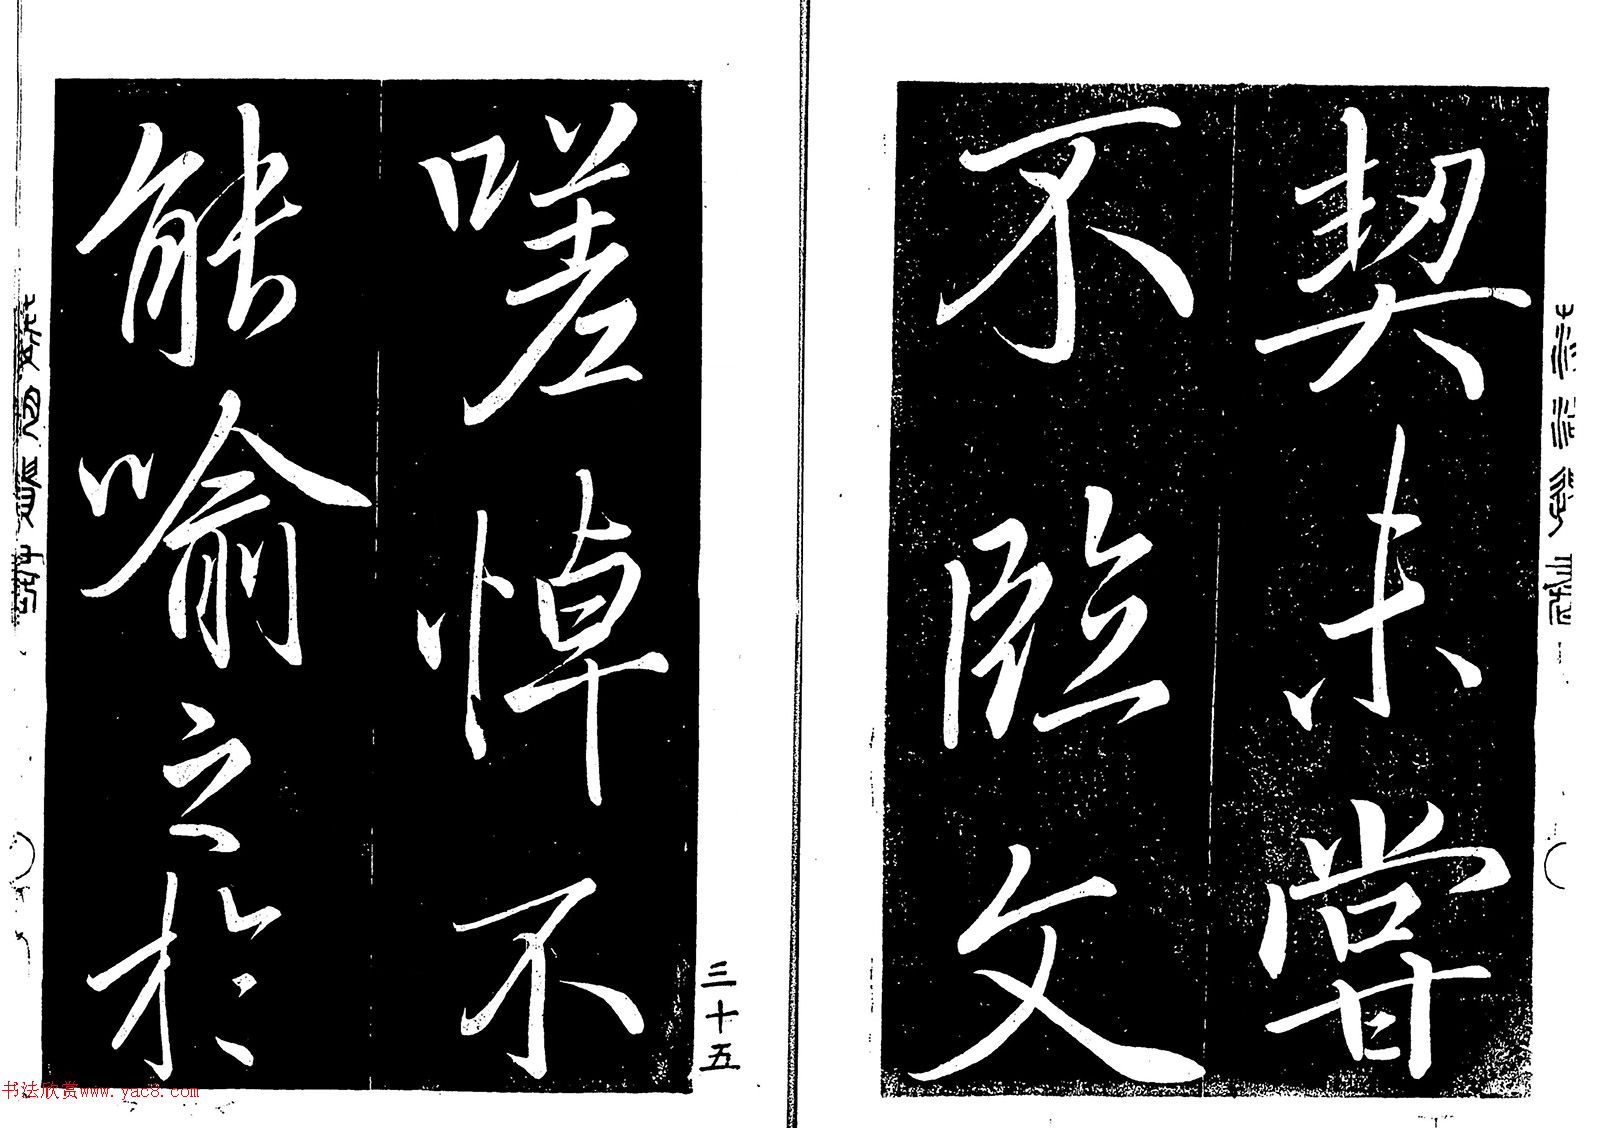 契未嘗
不臨文
嗟悼不
能喻之於
三十五
书法欣赏www.yac8.com